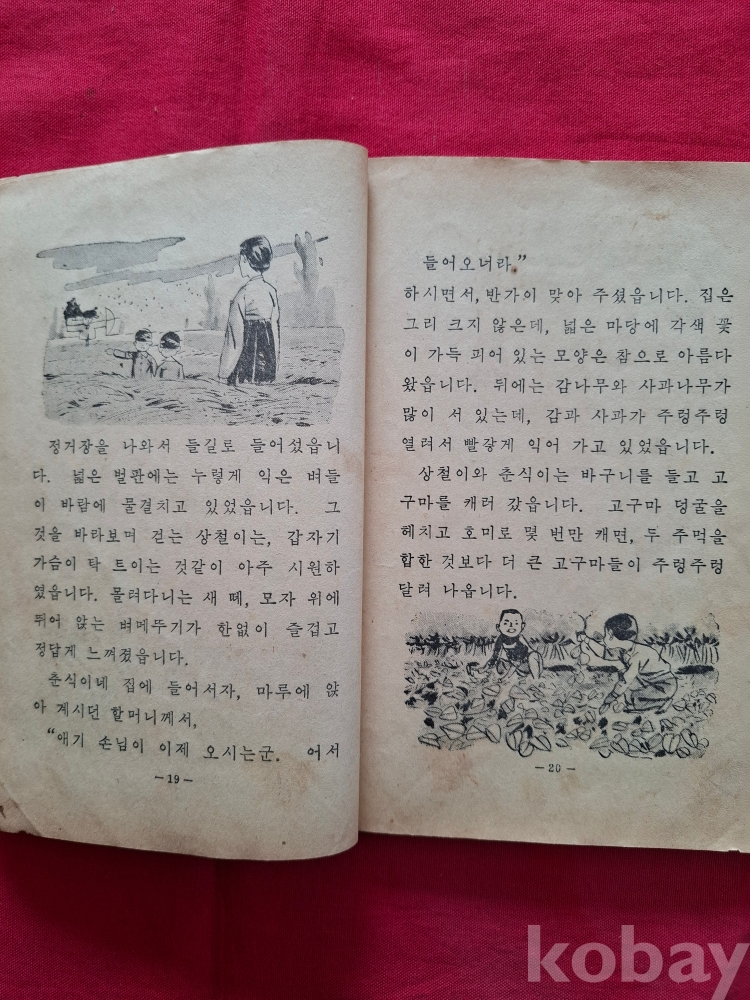 정거장을 나와서 들길로 들어섰읍니
다. 넓은 벌판에는 누렇게 익은 벼들
이 바람에 물결치고 있었읍니다. 그
것을 바라보며 걷는 상철이는, 갑자기
가슴이 탁 트이는 것같이 아주 시원하
였읍니다. 몰려다니는 새 떼, 모자 위에
뛰어 앉는 벼메뚜기가 한없이 즐겁고
정답게 느껴졌읍니다.
춘식이네 집에 들어서자, 마루에 앉
아 계시던 할머니께서,
“애기 손님이 이제 오시는군. 어서
—19—
들어오너라.”
하시면서, 반가이 맞아 주셨읍니다. 집은
그리 크지 않은데, 넓은 마당에 각색 꽃
이 가득 피어 있는 모양은 참으로 아름다
왔읍니다. 뒤에는 감나무와 사과나무가
많이 서 있는데, 감과 사과가 주렁주렁
열려서 빨갛게 익어 가고 있었읍니다.
상철이와 춘식이는 바구니를 들고 고
구마를 캐러 갔읍니다. 고구마 덩굴을
헤치고 호미로 몇 번만 캐면, 두 주먹을
합한 것보다 더 큰 고구마들이 주렁주렁
달려 나옵니다.
—20—
kobay